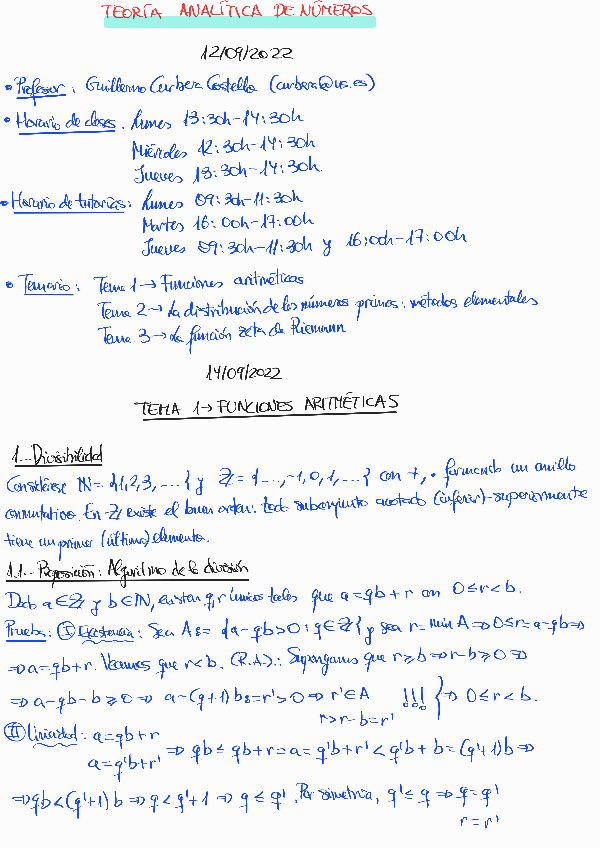 TEORÍA ANALÍTICA DE NÚMEROS
12/09/2022
• Profesor: Guillermo Curbera Costello (curbera@us.es)
• Horario de clases: Lunes 13:30h-14:30h
Miércoles 12:30h-14:30h
Jueves 13:30h-14:30h
• Horario de tutorías: Lunes 09:30h-11:30h
Martes 16:00h-17:00h
Jueves 09:30h-11:30h y 16:00h-17:00h
• Temario: Tema 1 → Funciones aritméticas
Tema 2 → La distribución de los números primos: métodos elementales
Tema 3 → La función zeta de Riemann
14/09/2022
TEMA 1 → FUNCIONES ARITMÉTICAS
1.- Divisibilidad
Considérese ℕ = {1,2,3,...} y ℤ = {...,-1,0,1,...} con +, · formando un anillo
conmutativo. En ℤ existe el buen orden: todo subconjunto acotado (inferior)-superiormente
tiene un primer (último) elemento.
1.1.- Proposición: Algoritmo de la división
Dado a∈ℤ y b∈ℕ, existen q,r únicos tales que a=qb+r con 0≤r<b.
Prueba: Ⓘ Existencia: Sea A := {a-qb>0 : q∈ℤ} y sea r = min A ⇒ 0≤r=a-qb ⇒
⇒ a=qb+r. Veamos que r<b. (R.A.): Supongamos que r≥b ⇒ r-b≥0 ⇒
⇒ a-qb-b≥0 ⇒ a-(q+1)b := r'>0 ⇒ r'∈A !!! } ⇒ 0≤r<b.
r>r-b=r'
Ⓘⓘ Unicidad: a=qb+r
a=q'b+r' ⇒ qb ≤ qb+r = a = q'b+r' < q'b+b = (q'+1)b ⇒
⇒ qb<(q'+1)b ⇒ q<q'+1 ⇒ q≤q'. Por simetría, q'≤q ⇒ q=q'
r=r'